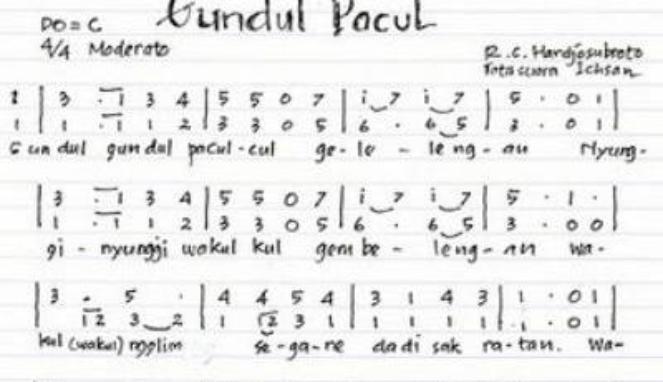 Gundul Pacul
DO = C
4/4 Moderato
R.C. Hardjosubroto
Tata suara Ichsan
1 | 3 . 1 3 4 | 5 5 0 7 | i 7 i 7 | 5 . 0 1 |
1 | 1 . 1 1 2 | 3 3 0 5 | 6 . 6 5 | 3 . 0 1 |
Gundul gundul pacul-cul ge-le - leng-an Nyung-
| 3 . 1 3 4 | 5 5 0 7 | i 7 i 7 | 5 . 1 . |
1 . 1 1 2 | 3 3 0 5 | 6 . 6 5 | 3 . 0 0 |
gi - nyunggi wakul kul gembe - leng-an wa-
| 3 . 5 . | 4 4 5 4 | 3 1 4 3 | 1 . 0 1 |
12 3 2 | 1 12 3 1 | 1 1 1 1 | 1 . 0 1 |
kul (wakul) ngglim se-ga-ne dadi sak ra-tan. Wa-